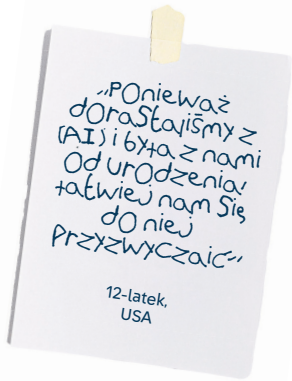 „Ponieważ
dorastaliśmy z
(AI) i była z nami
od urodzenia,
łatwiej nam się
do niej
przyzwyczaić”
12-latek,
USA